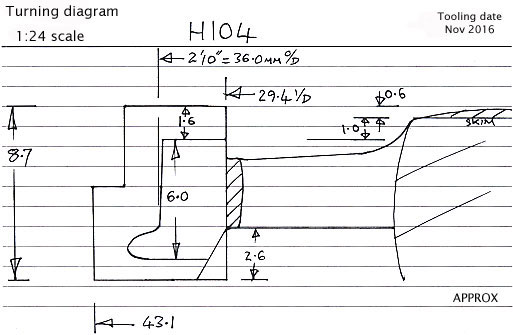 Turning diagram
Tooling date
1:24 scale
Nov 2016
H104
2'10" = 36.0MM O/D
29.4 I/D
0.6
1.6
1.0
SKIM
8.7
6.0
2.6
APPROX
43.1